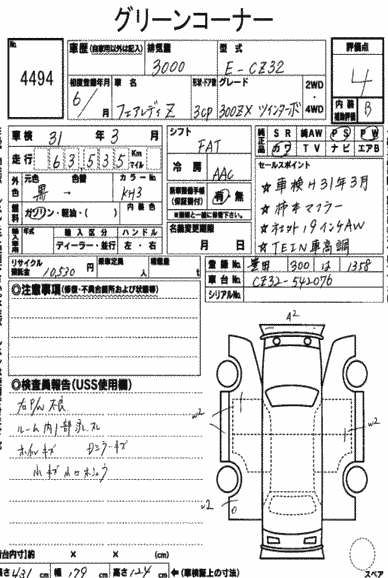 グリーンコーナー
No.
4494
車歴 (自家用以外は記入)
排気量
3000
型式
E-CZ32
評価点
4
初度登録年月
6/ 月
車名
フェアレディZ
形状・ドア数
3CP
グレード
300ZX ツインターボ
2WD
・
4WD
内装
補助評価
B
車検 31年 3月
走行 63535 Km マイル
シフト
FAT
冷房
AAC
純正品
SR 純AW PS PW
カワ TV ナビ エアB
外色
元色
黒→
色替
カラーNo.
KH3
燃料
ガソリン・軽油・( )
内装色
輸入車
年式
輸入区分
ハンドル
ディーラー・並行
左・右
新車整備手帳
(保証書付)
有・無
名義変更期限
月 日
セールスポイント
☆車検H31年3月
☆柿本マフラー
☆19インチAW
☆TEIN車高調
リサイクル
預託金
10,530 円
乗車定員
人
積載量
t
登録No.
300 は 1358
車台No.
CZ32-542076
シリアルNo.
◎注意事項 (修復・不具合箇所および状態等)
◎検査員報告 (USS使用欄)
ルーム内1部
小キズ
A2
w2
w2
(台内寸)約 × × (cm)
長さ 431 cm 幅 179 cm 高さ 124 cm ←(車検証上の寸法)
スペア